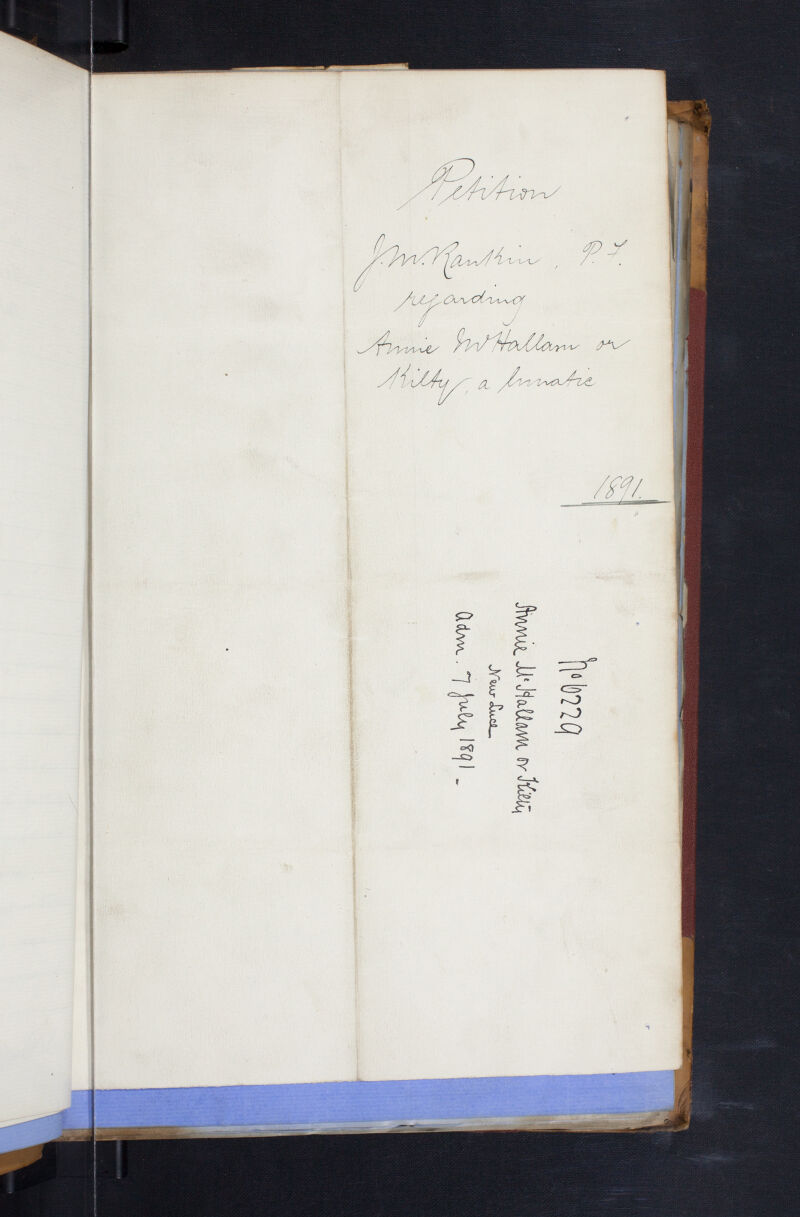 Petition
J. M. Rankin, P. F.
regarding
Annie McHallam or
Kilty, a lunatic
1891.
No 6229
Annie Mc Hallam or Kilty
New Luce
adm. 7 July 1891 -